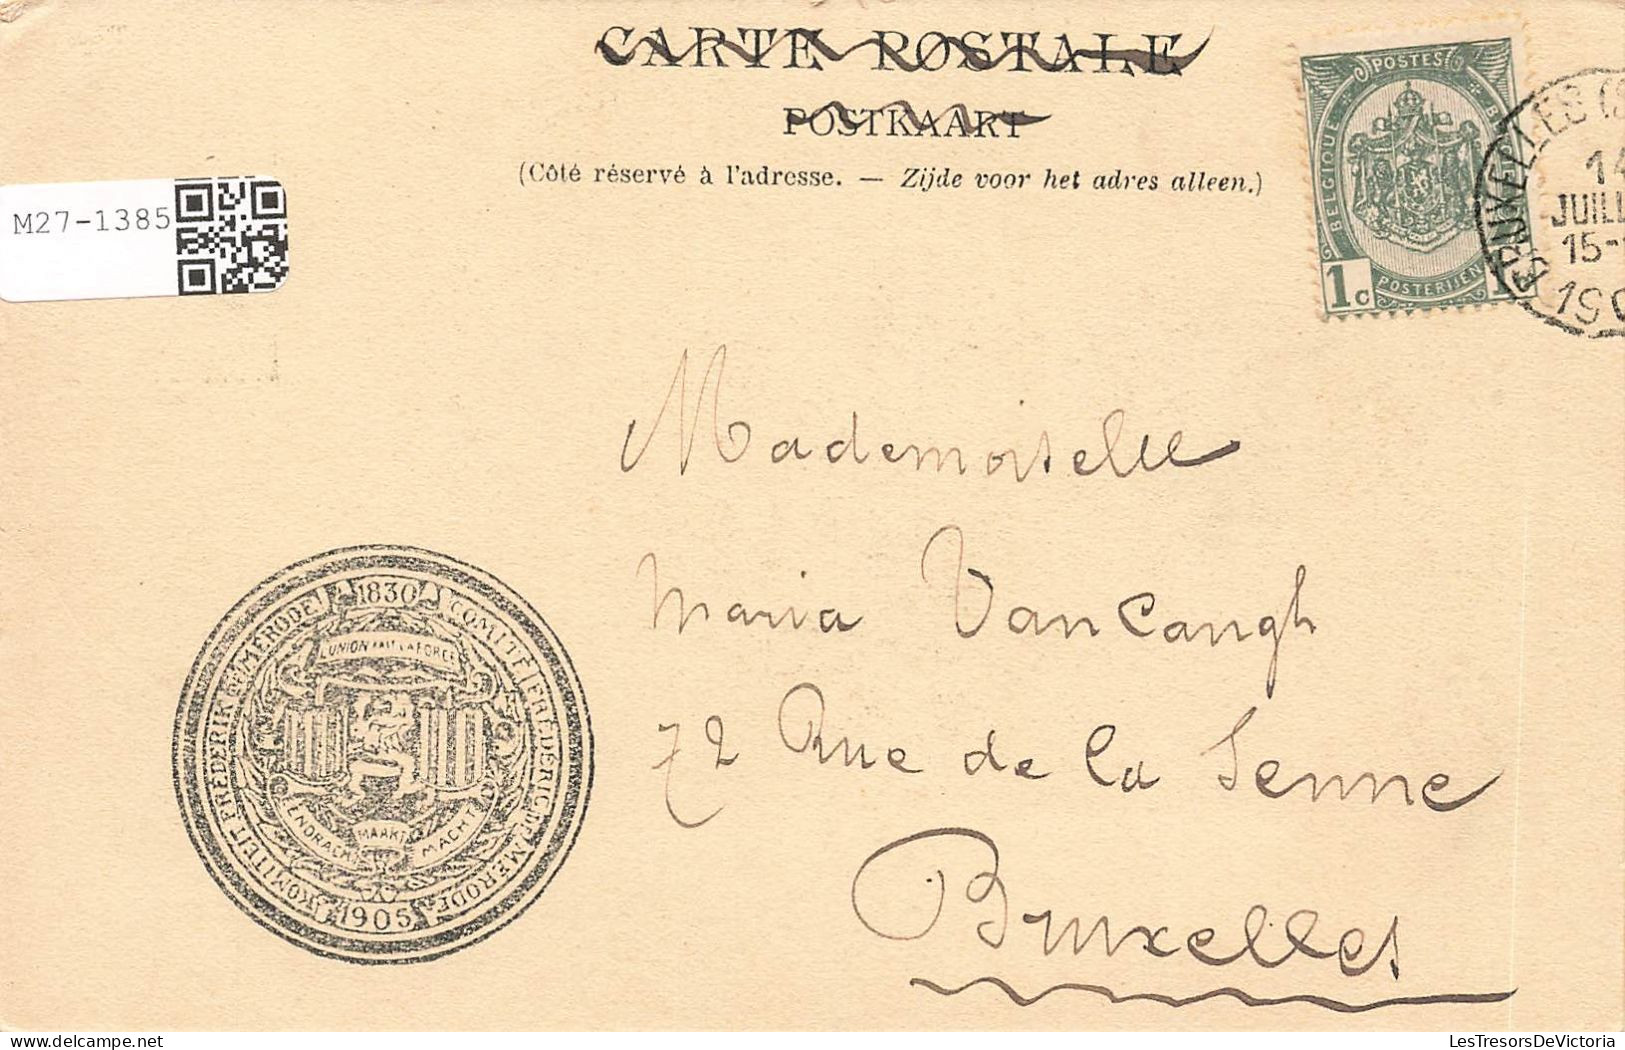 CARTE POSTALE
POSTKAART
(Côté réservé à l'adresse. — Zijde voor het adres alleen.)
M27-1385
POSTES
BELGIQUE
1c
POSTERIJEN
BRUXELLES
14
JUILL
15-
190
Mademoiselle
Maria Van Cangh
72 Rue de la Senne
Bruxelles
1830
COMITÉ FRÉDÉRIC DE MERODE
KOMITEIT FREDERIK DE MERODE
L'UNION FAIT LA FORCE
EENDRACHT MAAKT MACHT
1905
LesTresorsDeVictoria